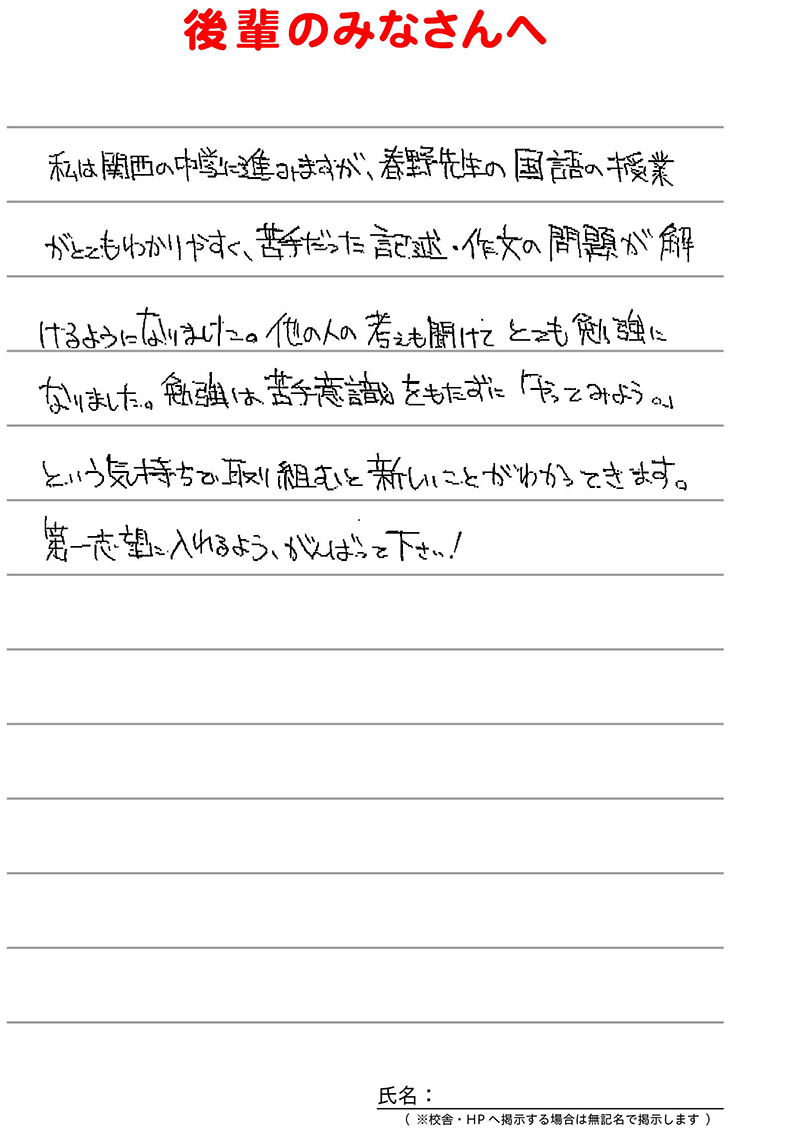 後輩のみなさんへ
私は関西の中学に進みますが、春野先生の国語の授業
がとてもわかりやすく、苦手だった記述・作文の問題が解
けるようになりました。他の人の考えも聞けてとても勉強に
なりました。勉強は苦手意識をもたずに「やってみよう。」
という気持ちで取り組むと新しいことがわかってきます。
第一志望に入れるよう、がんばって下さい!
氏名:
(※校舎・HPへ掲示する場合は無記名で掲示します)